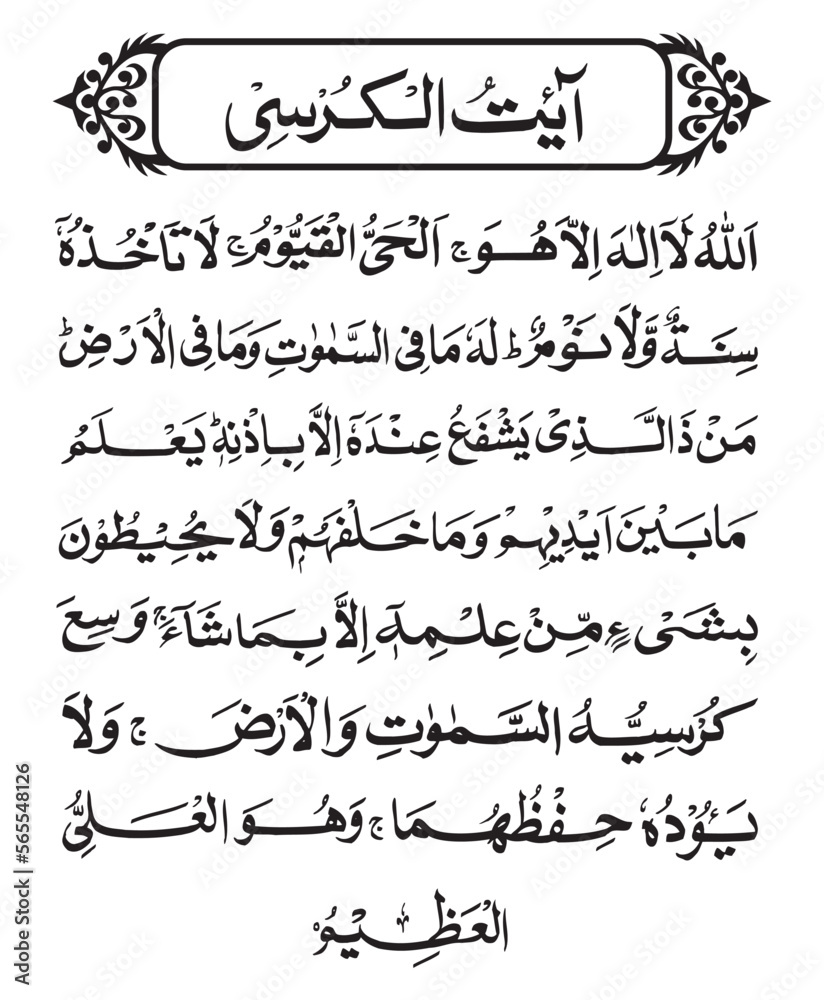 آيٰتُ الْكُرْسِىْ
اَللّٰهُ لَآ اِلٰهَ اِلَّا هُوَ ج اَلْحَىُّ الْقَيُّوْمُ ج لَا تَاْخُذُهٗ
سِنَةٌ وَّلَا نَوْمٌ ط لَهٗ مَا فِى السَّمٰوٰتِ وَمَا فِى الْاَرْضِ ط
مَنْ ذَا الَّذِىْ يَشْفَعُ عِنْدَهٗٓ اِلَّا بِاِذْنِهٖ ط يَعْلَمُ
مَا بَيْنَ اَيْدِيْهِمْ وَمَا خَلْفَهُمْ وَلَا يُحِيْطُوْنَ
بِشَىْءٍ مِّنْ عِلْمِهٖٓ اِلَّا بِمَا شَآءَ ج وَسِعَ
كُرْسِيُّهُ السَّمٰوٰتِ وَالْاَرْضَ ج وَلَا
يَـُٔوْدُهٗ حِفْظُهُمَا ج وَهُوَ الْعَلِىُّ
الْعَظِيْمُ
Adobe Stock | #565548126